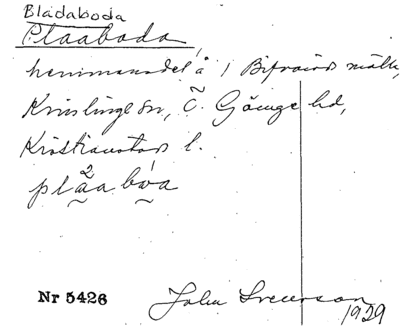 Bladaboda
Plaaboda
hemmansdel å 1 Bifvaröds mtl,
Knislinge sn, Ö. Göinge hd,
Kristianstads l.
plåa bóa
2
Nr 5426
John Svensson
1929